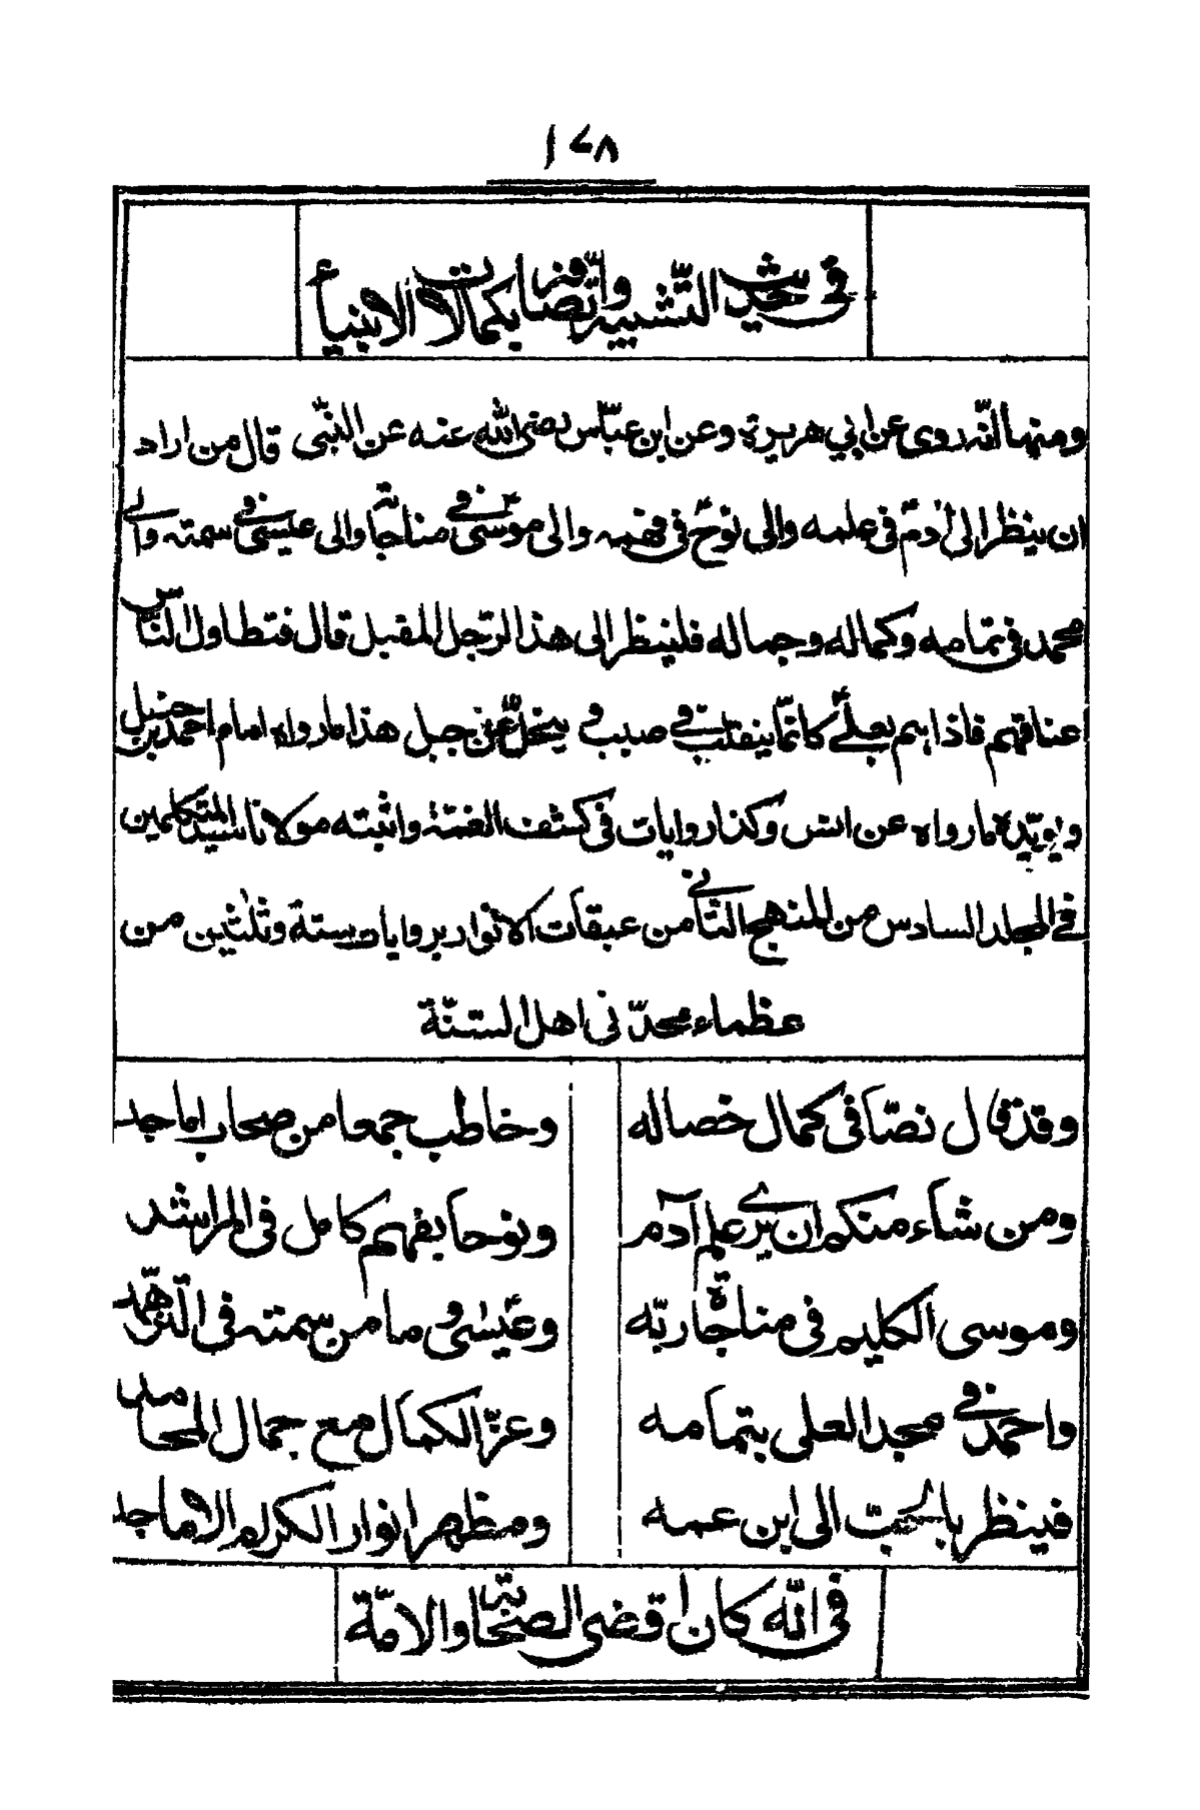 ١٧٨
فی حدیث التّشبیه واتّصافه بکمالات الانبیاء
ومنها انّه روی عن ابی هریرة وعن ابن عبّاس رضی الله عنه عن النّبی قال من اراد
ان ینظر الی اٰدم فی علمه والی نوح فی فهمه والی موسی فی مناجاته والی عیسی فی سمته والی
محمد فی تمامه وکماله وجماله فلینظر الی هذا الرّجل المقبل قال فتطاول النّاس
اعناقهم فاذا هم بعلی کانّما ینقلب فی صبب و ینحلّ عن جبل هذا مارواه امام احمد بن حنبل
ویؤیّده مارواه عن انس وکذا روایات فی کشف الغمّة واثبته مولانا سید المتکلمین
فی المجلد السادس من المنهج الثّانی من عبقات الانوار بروایات ستة وثلثین من
عظماء محدّثی اهل السّنّة
وقد قال نصّا فی کمال خصاله
وخاطب جمعا من صحاب اماجد
ومن شاء منکم ان یری علم آدم
ونوحا بفهم کامل فی المراشد
وموسی الکلیم فی مناجاة ربّه
وعیسٰی و ما من سمته فی التّزهّد
واحمد فی مجد العلی بتمامه
وعزّ الکمال مع جمال المحامد
فینظر بالـ الی ابن عمه
ومظهر انوار الکرام الاماجد
فی انّه کان اقضی الصّحابة والامّة